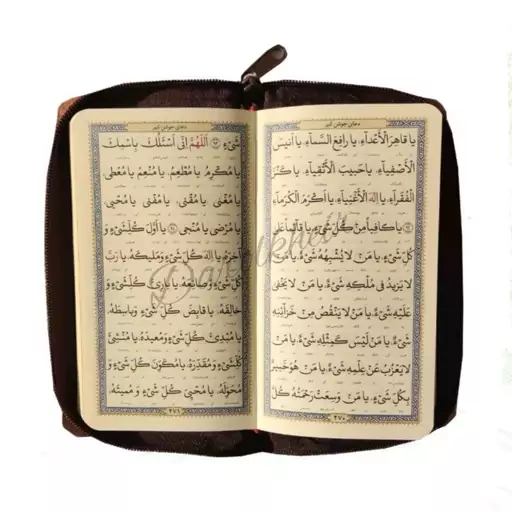 دعای جوشن کبیر
یا قاهِرَ الْأَعْدآءِ، یا رافِعَ السَّمآءِ، یا اَنیسَ
الْأَصْفِیآءِ، یا حَبیبَ الْأَتْقِیآءِ، یا کَنْزَ
الْفُقَرآءِ، یا اِلهَ الْأَغْنِیآءِ، یا اَکْرَمَ الْکُرَمآءِ
یا کافِیاً مِنْ کُلِّ شَیْءٍ، یا قآئِماً عَلی
کُلِّ شَیْءٍ، یا مَنْ لا یُشْبِهُهُ شَیْءٌ، یا مَنْ
لا یَزیدُ فی مُلْکِهِ شَیْءٌ، یا مَنْ لا یَخْفی
عَلَیْهِ شَیْءٌ، یا مَنْ لا یَنْقُصُ مِنْ خَزآئِنِهِ
شَیْءٌ، یا مَنْ لَیْسَ کَمِثْلِهِ شَیْءٌ، یا مَنْ
لا یَعْزُبُ عَنْ عِلْمِهِ شَیْءٌ، یا مَنْ هُوَ خَبیرٌ
بِکُلِّ شَیْءٍ، یا مَنْ وَسِعَتْ رَحْمَتُهُ کُلَّ
۲۷۰
دعای جوشن کبیر
شَیْءٍ اَللّهُمَّ اِنّی اَسْئَلُکَ بِاسْمِکَ
یا مُکْرِمُ، یا مُطْعِمُ، یا مُنْعِمُ، یا مُعْطی
یا مُغْنی، یا مُقْنی، یا مُفْنی، یا مُحْیی
یا مُرْضی، یا مُنْجی یا اَوَّلَ کُلِّ شَیْءٍ وَ
آخِرَهُ، یا اِلهَ کُلِّ شَیْءٍ وَ مَلیکَهُ، یا رَبَّ
کُلِّ شَیْءٍ وَ صانِعَهُ، یا بارِئَ کُلِّ شَیْءٍ وَ
خالِقَهُ، یا قابِضَ کُلِّ شَیْءٍ وَ باسِطَهُ
یا مُبْدِئَ کُلِّ شَیْءٍ وَ مُعیدَهُ، یا مُنْشِئَ
کُلِّ شَیْءٍ وَ مُقَدِّرَهُ، یا مُکَوِّنَ کُلِّ شَیْءٍ وَ
مُحَوِّلَهُ، یا مُحْیِیَ کُلِّ شَیْءٍ وَ مُمیتَهُ
۲۷۱